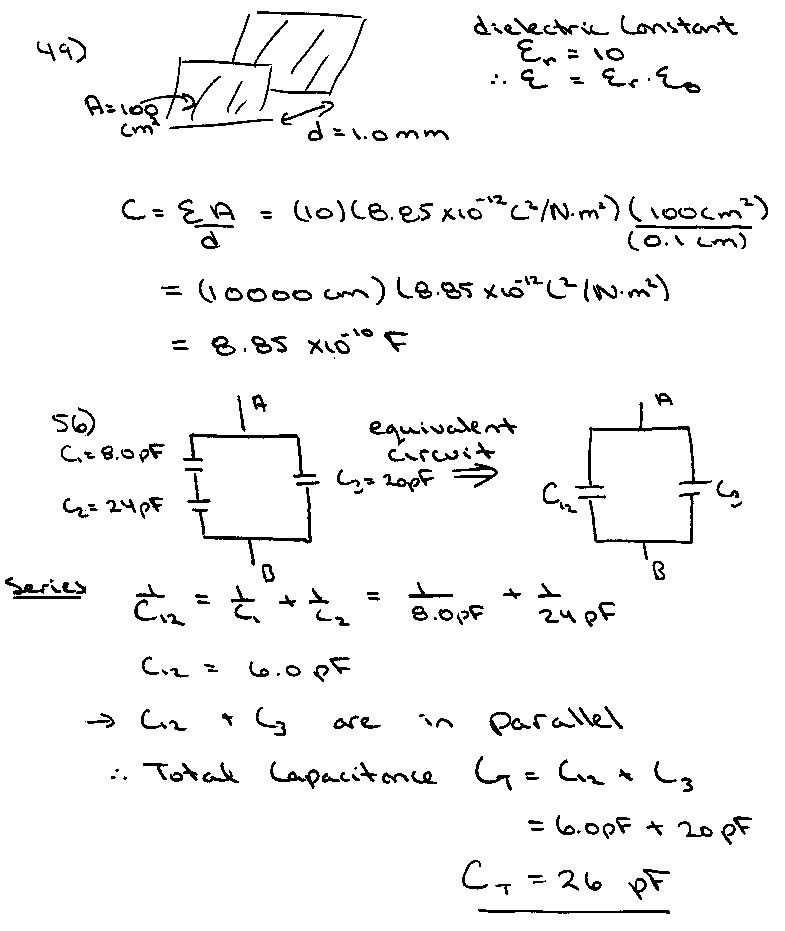 49)
dielectric Constant
εr = 10
∴ ε = εr · ε0
A=100 cm²
d = 1.0 mm
C = εA/d = (10)(8.85 x10⁻¹² C²/N·m²) (100cm²)/(0.1 cm)
= (10000 cm) (8.85 x10⁻¹² C²/N·m²)
= 8.85 x10⁻¹⁰ F
56)
A
C₁=8.0pF
C₂=24pF
C₃=20pF
B
equivalent
circuit
⇒
A
C₁₂
C₃
B
Series
1/C₁₂ = 1/C₁ + 1/C₂ = 1/8.0pF + 1/24 pF
C₁₂ = 6.0 pF
→ C₁₂ + C₃ are in parallel
∴ Total Capacitance C_T = C₁₂ + C₃
= 6.0pF + 20pF
C_T = 26 pF